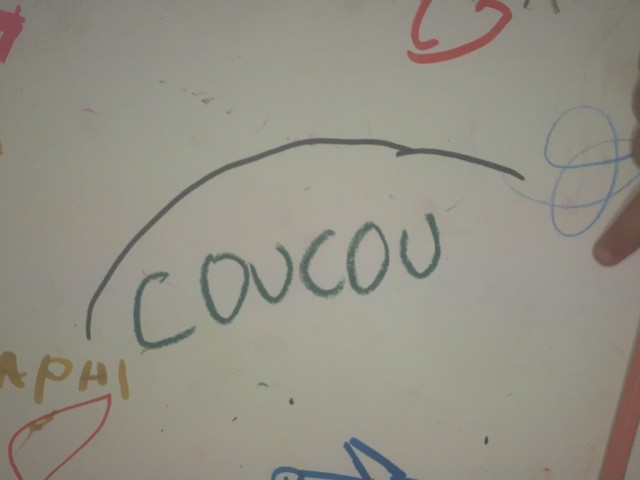 COUCOU
APHI